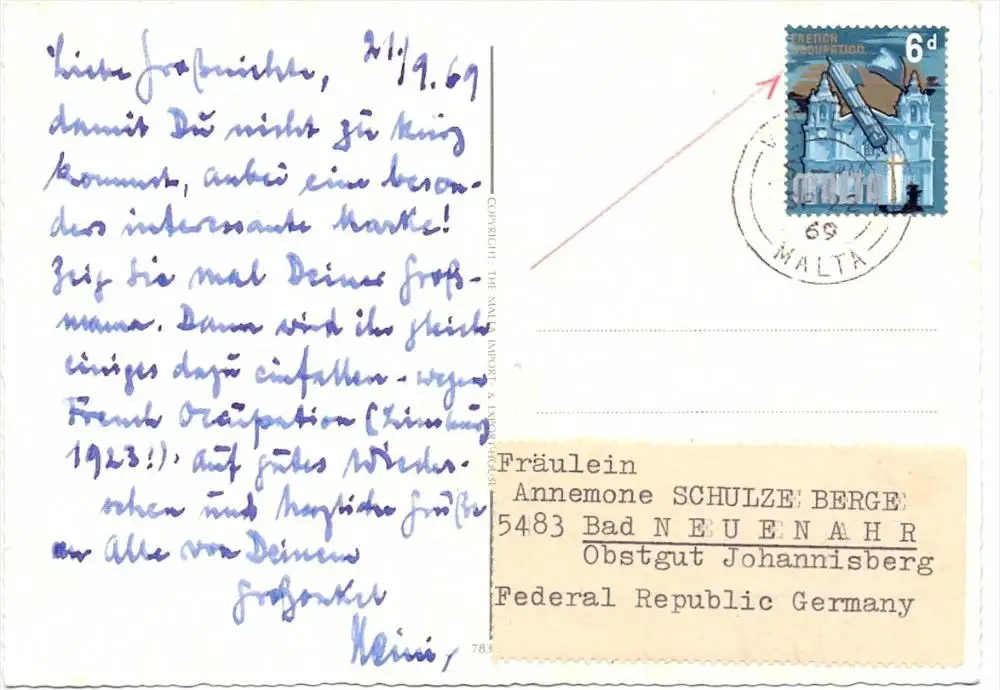 Liebe Großnichte, 21./9.69
damit Du nicht zu kurz
kommst, anbei eine beson-
ders interessante Marke!
Zeig sie mal Deiner Groß-
mama. Dann wird ihr gleich
einiges dazu einfallen - wegen
French Occupation (Limburg
1923!). Auf gutes Wieder-
sehen und herzliche Grüße
an Alle von Deinem
Großonkel
Heini,
COPYRIGHT: THE MALTA IMPORT & EXPORT HOUSE
783
FRENCH
OCCUPATION
6d
MALTA
69
MALTA
Fräulein
Annemone SCHULZE BERGE
5483 Bad NEUENAHR
Obstgut Johannisberg
Federal Republic Germany